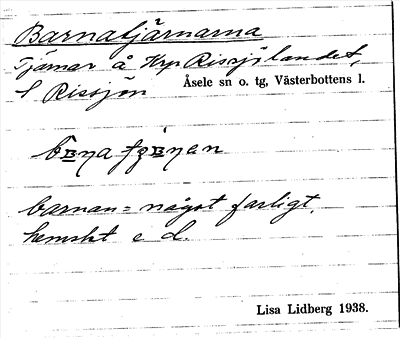 Barnatjärnarna
Tjärnar å Krp Rissjölandet,
S Rissjön Åsele sn o. tg, Västerbottens l.
barnan = något farligt,
hemskt e d.
Lisa Lidberg 1938.